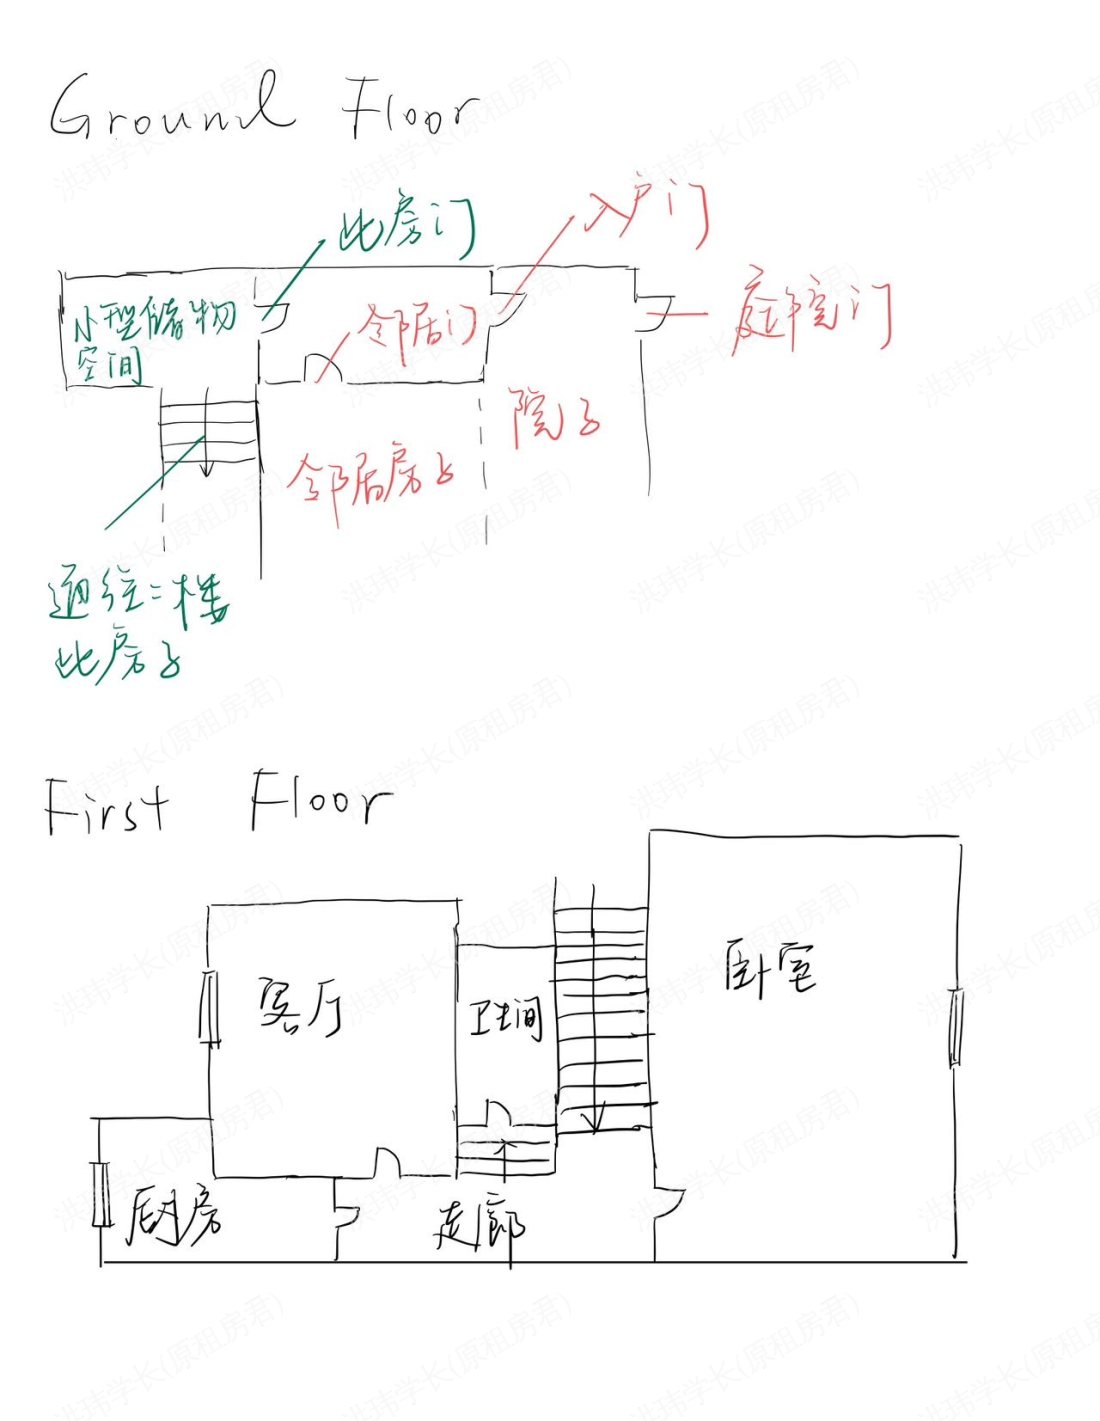 Ground Floor
此房门
入户门
小型储物
空间
邻居门
庭院门
院子
邻居房子
通往二楼
此房子
First Floor
客厅
卫生间
卧室
厨房
走廊
洪玮学长(原租房君)